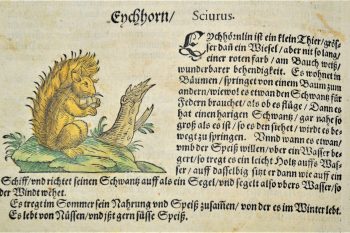 Eychhorn/ Sciurus.
Eychhörnlin ist ein klein Thier/ grös-
ser dañ ein Wiesel/ aber nit so lang/
einer roten farb/ am Bauch weiß/
wunderbarer behendigkeit. Es wohnet in
Bäumen/ springet von einem Baum zum
andern/ wiewol es etwan den Schwantz für
Federn brauchet/ als ob es flüge/ Dann es
hat einen harigen Schwantz/ gar nahe so
groß als es ist/ so es den stehet/ wirdt es be-
wegt zu springen. Vnnd wann es etwan/
vmb der Speiß willen/ vber ein Wasser be-
gert/ so tregt es ein leicht Holtz auffs Was-
ser/ auff dasselbig sitzt er dann wie auff ein
Schiff/ vnd richtet seinen Schwantz auff als ein Segel/ vnd segelt also vbers Wasser/ so
der Windt wehet.
Es tregt im Sommer sein Nahrung vnd Speiß zusam̃en/ von der es im Winter lebt.
Es lebt von Nüssen/ vnd ißt gern süsse Speiß.